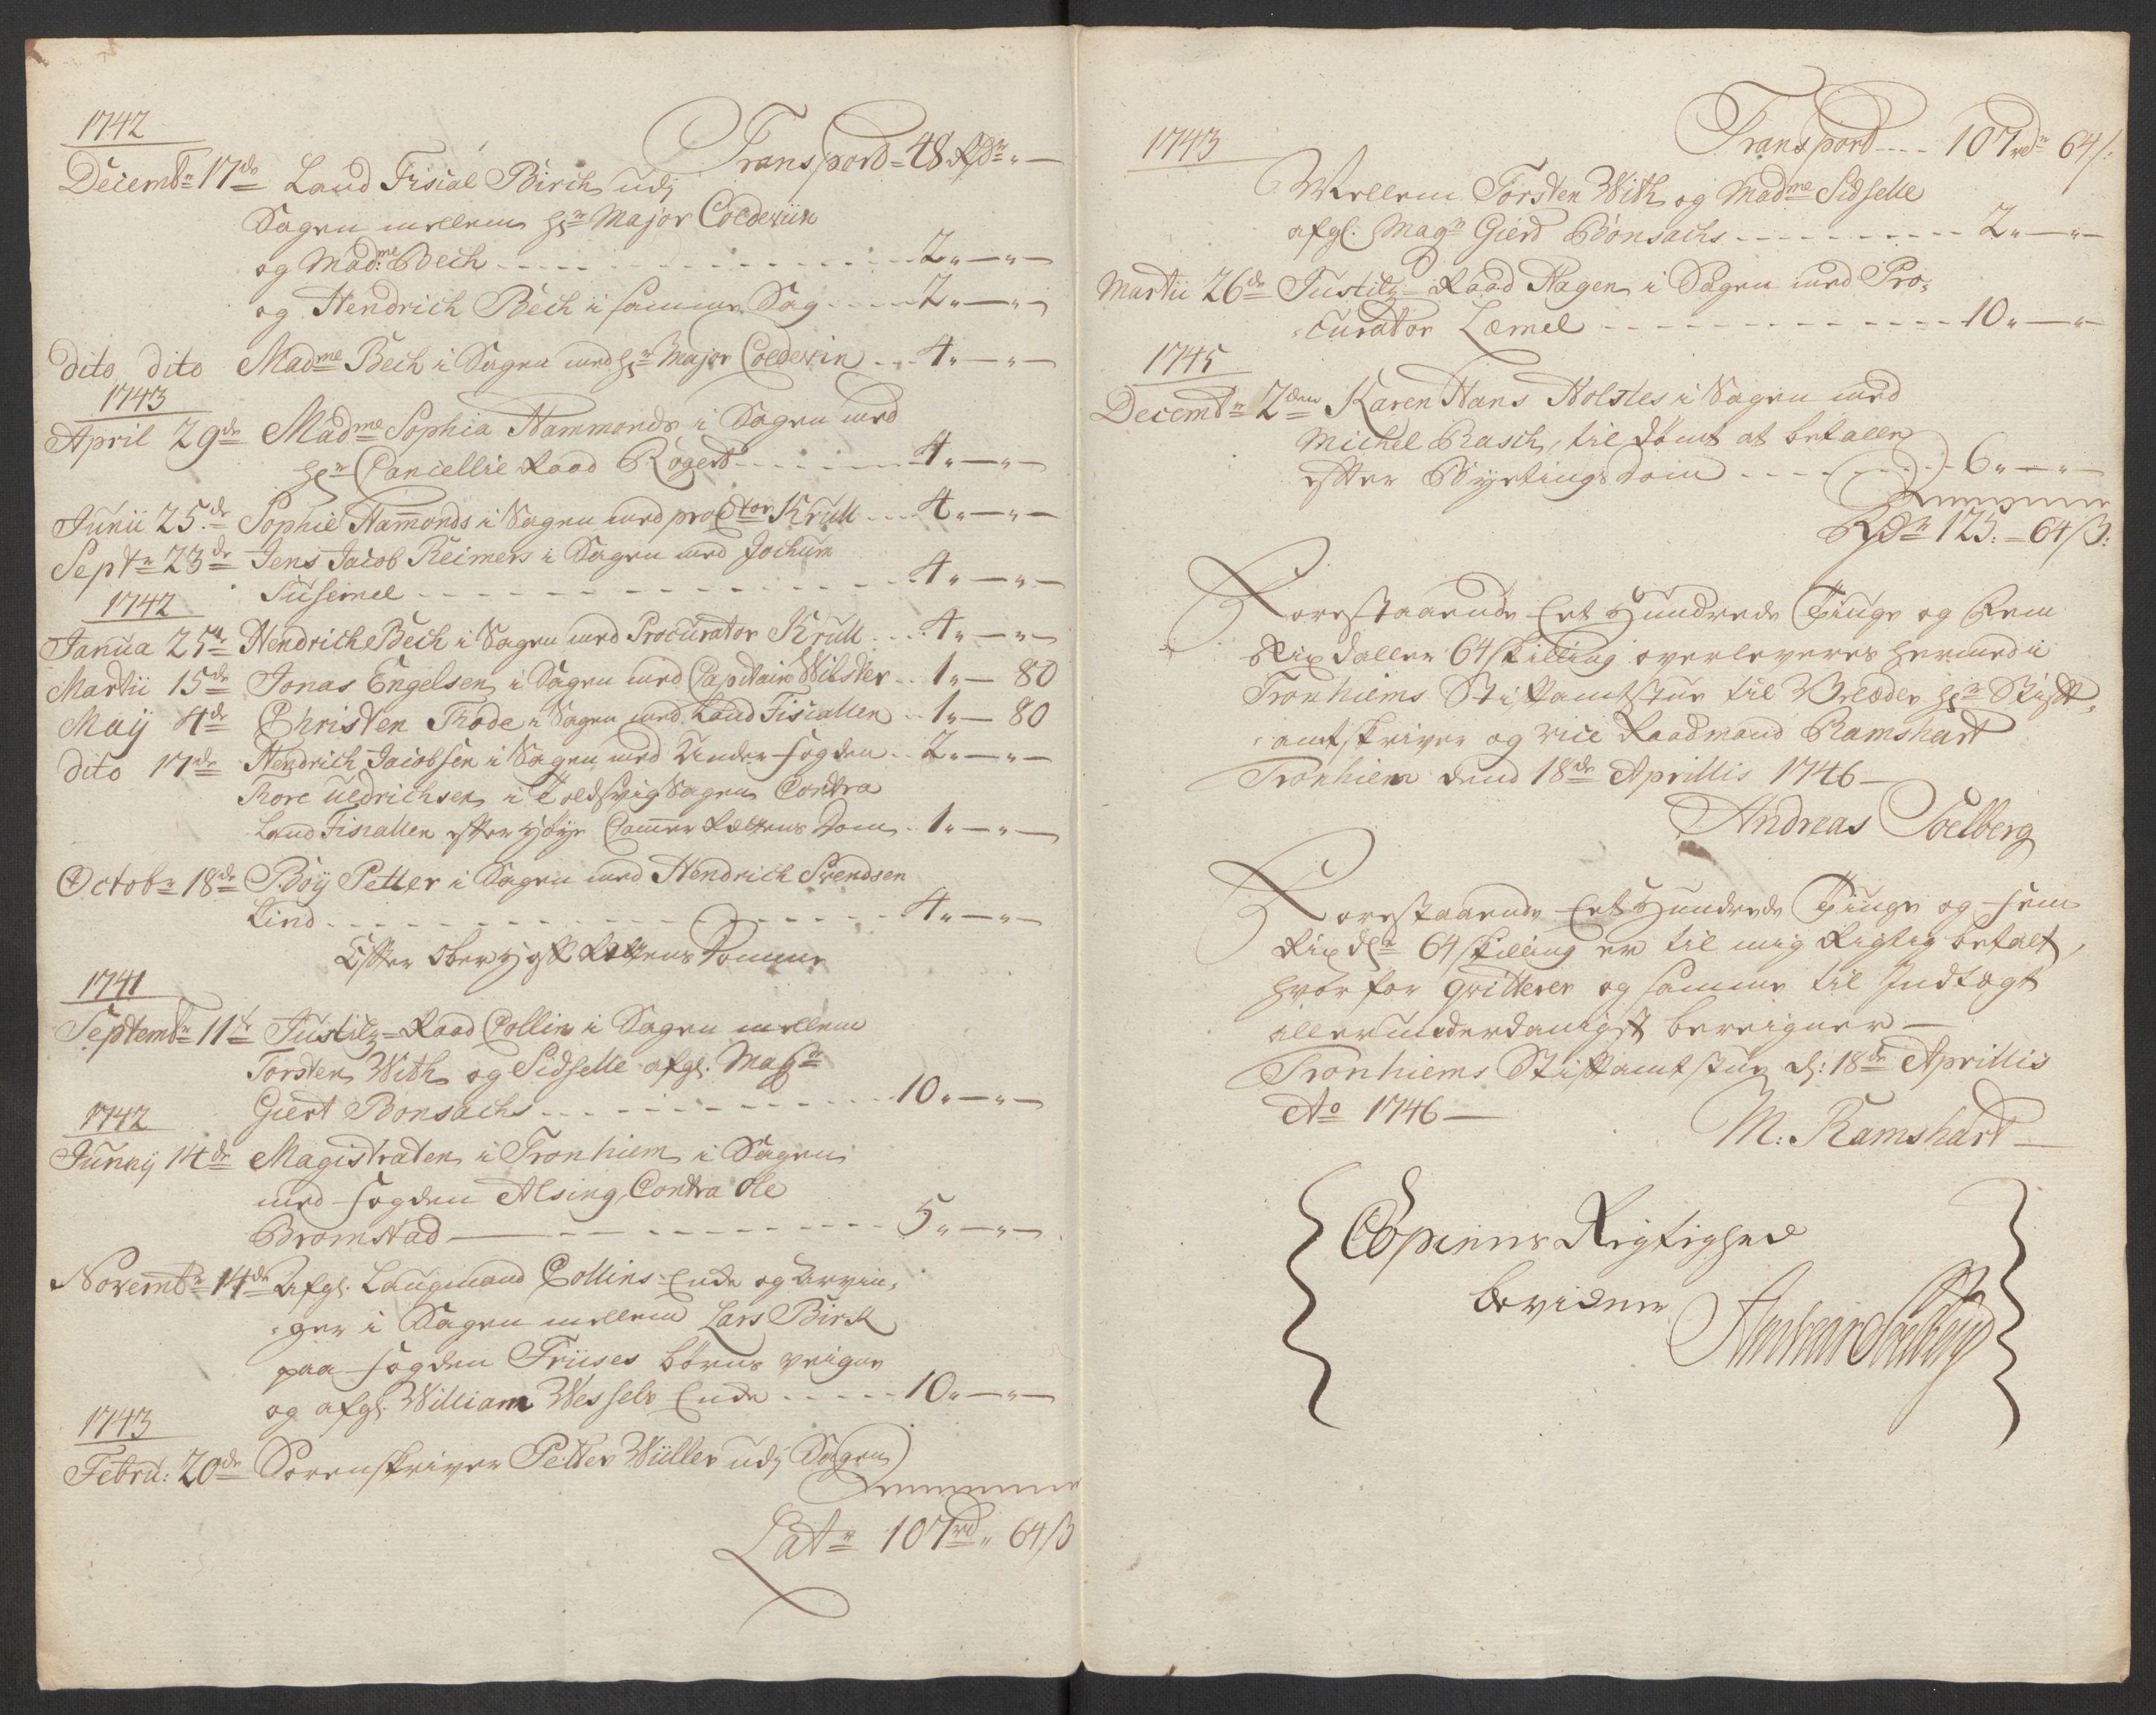 1742
Transpord = 48 Rdr „ —
Decembr 17de Land Fiscal Birch udj
Sagen mellem Hr Major Coldevin
og Madme Bech - - - 2 „ — „ —
og Hendrich Bech i samme Sag - - - 2 „ — „ —
dito dito Madme Bech i Sagen med Hr Major Coldevin - - 4 „ — „ —
1743
April 29de Madme Sophia Hammonds i Sagen med
Hr Cancellie Raad Rogert - - - 4 „ — „ —
Junii 25de Sophie Hammonds i Sagen med procator Krull - - - 4 „ — „ —
Septr 23de Jens Jacob Reimers i Sagen med Jochum
Susemel - - - 4 „ — „ —
1742
Janua 25de Hendrich Bech i Sagen med Procurator Krull - - - 4 „ — „ —
Martii 15de Jonas Engelsen i Sagen med Capitain Wibster - - 1 „ — 80
Maij 4de Christen Rode i Sagen med Land Fiscallen - - 1 „ — 80
dito 17de Hendrich Jacobsen i Sagen med Under-fogden - - 2 „ — „ —
Tore Uldrichsen i Toldsvig Sagen Contra
Land Fiscallen efter Høye Camer Rættens Dom - - 1 „ — „ —
Octobr 18de Boij Petter i Sagen med Hendrich Svendsen
Lind - - - 4 „ — „ —
Efter Ober Hoff Rettens Domme
1741
Septembr 11te Justitz = Raad Collin i Sagen mellem
Torsten With og Sidselle afgl. Magr
Giert Bonsachs - - - 10 „ — „ —
1742
Junny 14de Magistraten i Tronhiem i Sagen
med fogden Alsing Contra Ole
Bromstad - - - 5 „ — „ —
Novembr 14de Afgl. Laugmand Collins Enke og Arvin-
-ger i Sagen mellem Lars Birch
paa fogden Friises børns veigne
og afgl. William Wessels Enke - - - 10 „ — „ —
1743
Febru: 20de Sorenskriver Petter Wüller udj Sagen
Latr 107rd „ 64 ß
1743
Transpord - - - 107rdr 64 ß:
Mellem Torsten With og Madme Sidselle
afgl. Magr Gierd Bonsachs - - - 2 „ — „ —
Martii 26de Justitz = Raad Hagen i Sagen med Pro-
-curator Læmel - - - 10 „ — „ —
1745
Decembr 2den Karen Hans Holstes i Sagen med
Michel Rasch, til dømt at betalle
efter Byetings dom - - - 6 „ — „ —
Summa
Rdr 125: — 64 ß:
Forestaaende Eet Hundrede Tiuge og Fem
Rixdaller 64 skilling overleveres hermed i
Tronhiems Stiftamtstue til Velædle Hr Stift-
-amtskriver og vice Raadmand Ramshart
Tronhiem dend 18de Aprillis 1746 —
Andreas Soelberg
Forestaaende Eet Hundrede Tiuge og fem
Rixdlr 64 skilling er til mig Rigtig betalt,
hvorfor qvitterer og samme til Indtægt
allerunderdanigst bereigner —
Tronhiems Stiftamtstue d: 18de Aprillis
Ao 1746 —
M: Ramshart —
Copiens Rigtighed
bevidner
Andreas Soelberg